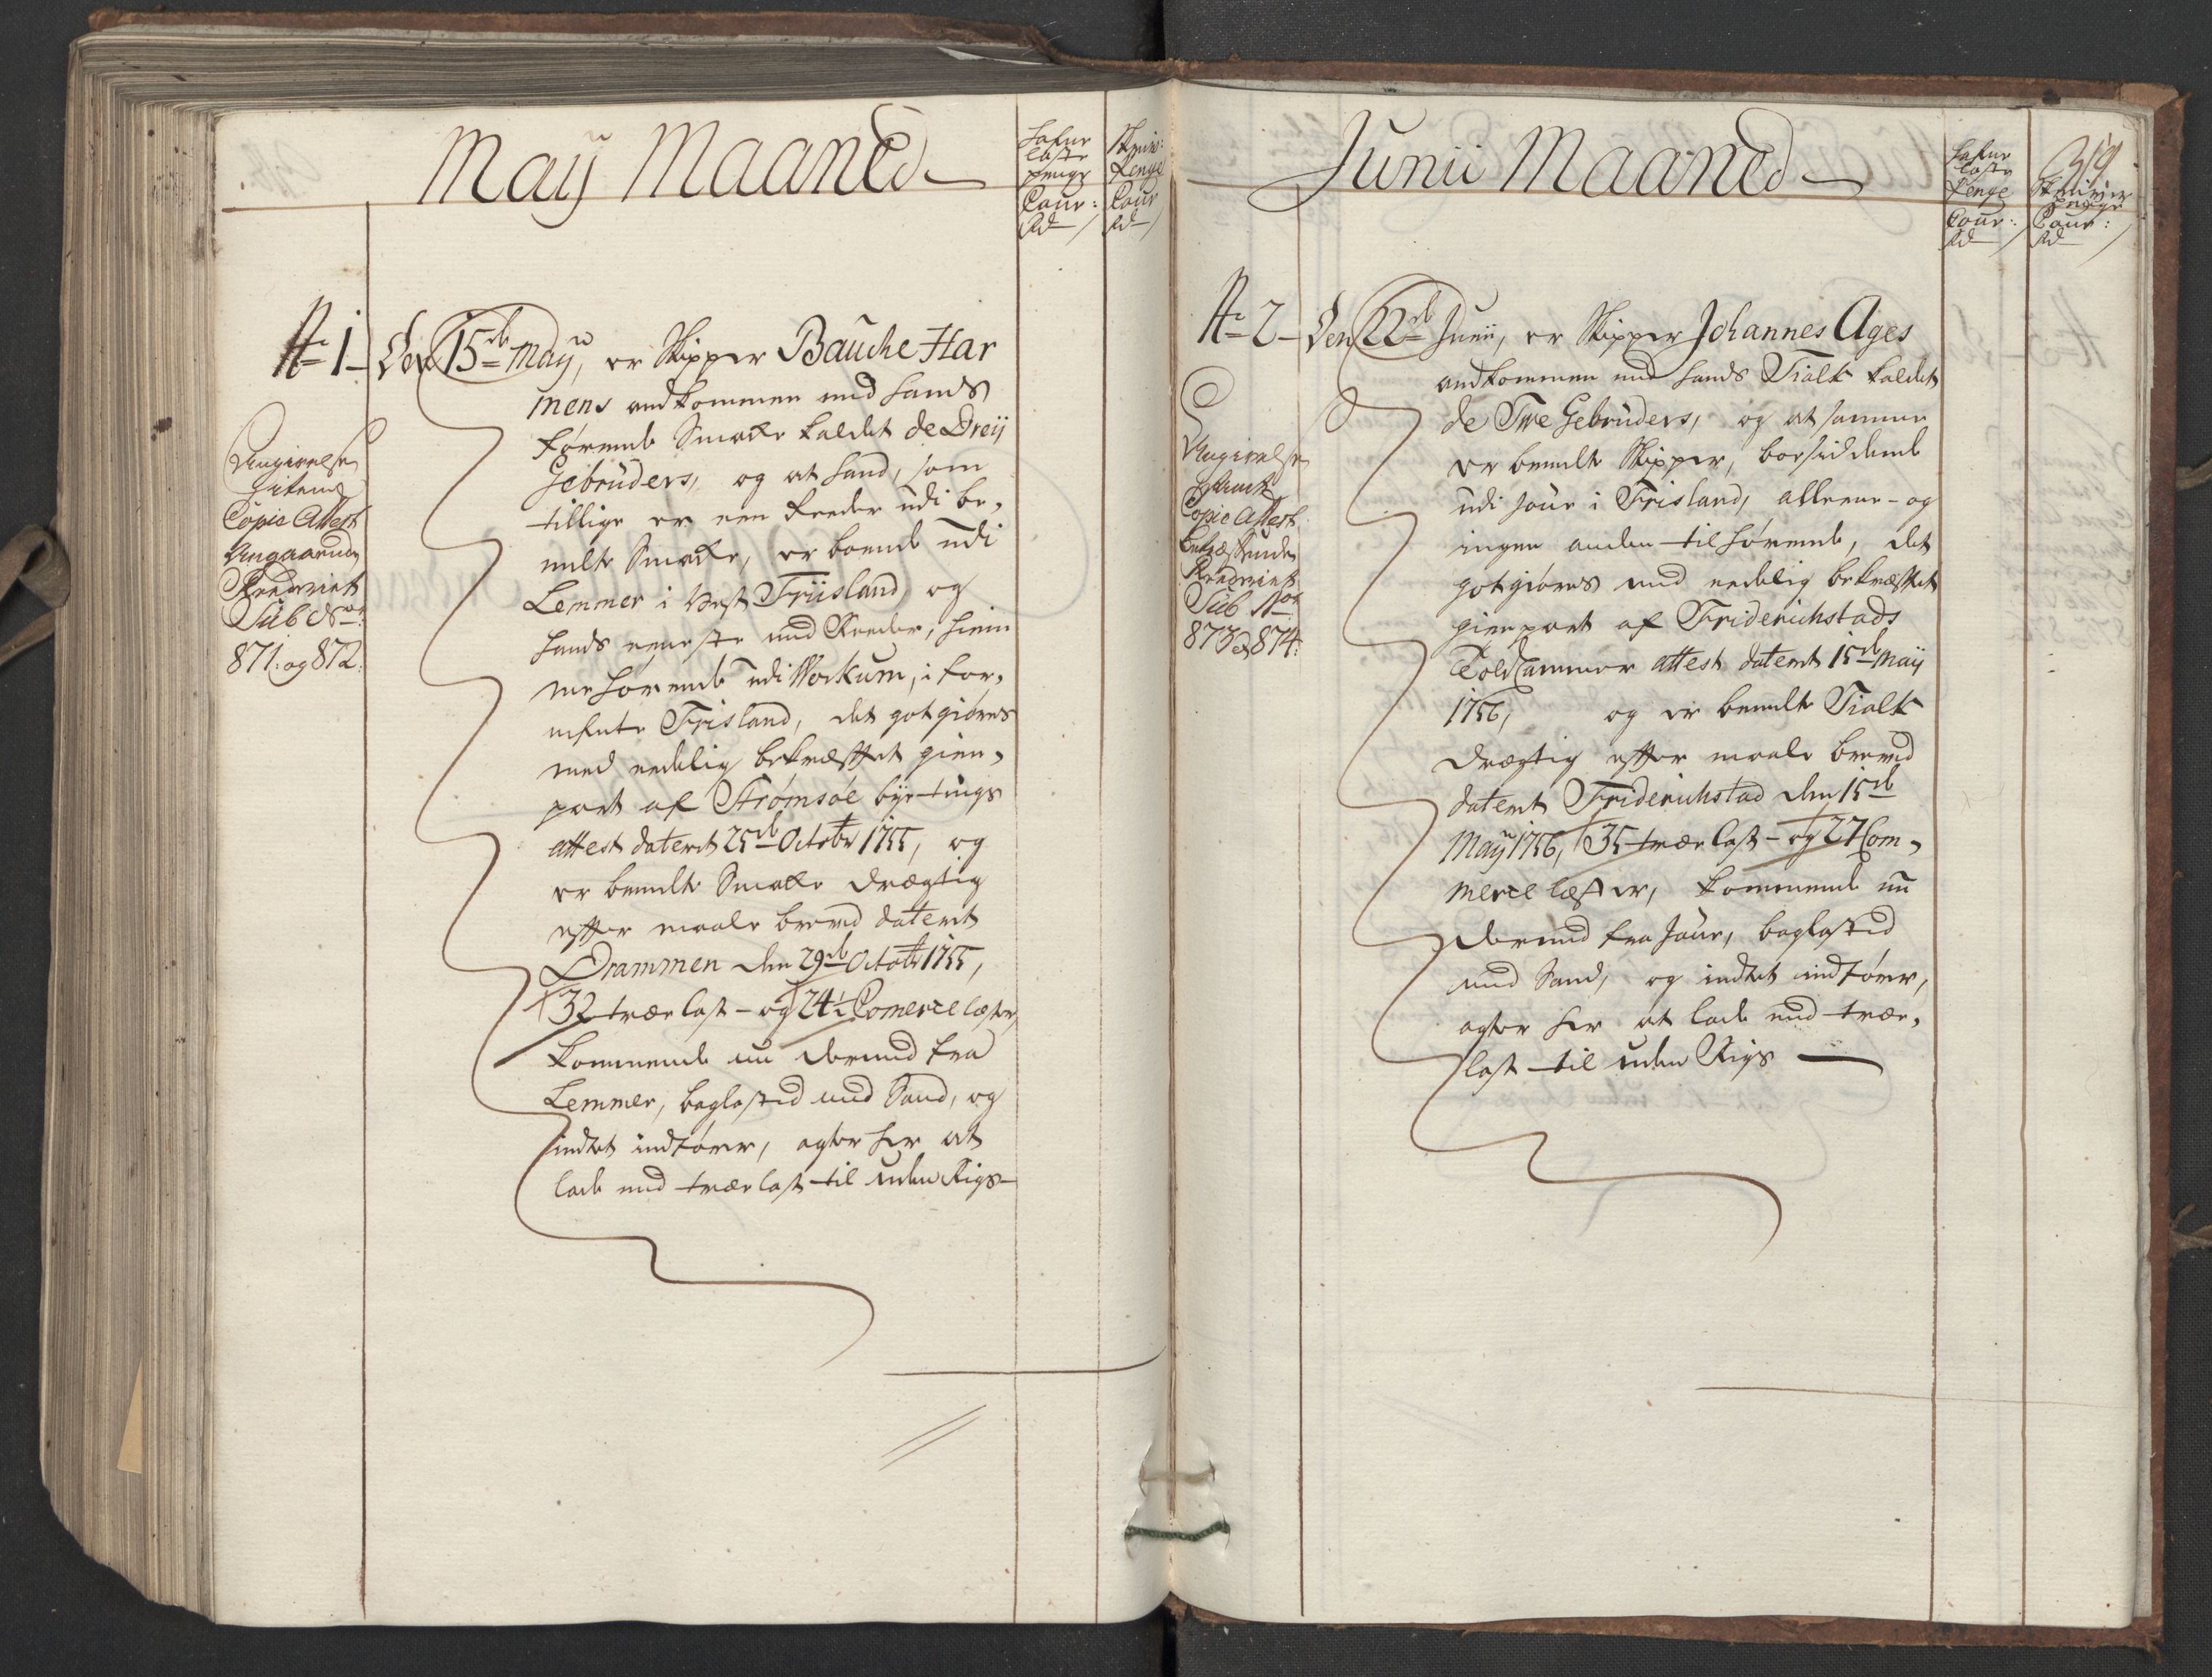 Maÿ Maaned
Hafne
laste
penge
Cour:
Rd
Skriver
Penge
Cour
Rd
No 1 Den 15de Maÿ, er Skipper Bauche Har
mens andkommen med hands
førende Smakke kaldet de Dreÿ
Gebrüders, og at hand, som
tillige er een Reeder udi be,
melte Smakke, er boende udi
Lemmer i Vest Friisland og
hands eeneste med Reeder, hiem
me hørende udi Workum, i for,
meente Frisland, det gotgiøres
med eedelig bekræfftet gien,
part af Strømsøe bÿe tings
attest dateret 25de Octobr 1755, og
er bemelte Smakke drægtig
effter maale breved dateret
Drammen den 29de Octobr 1755,
32 træe last - og 24½ Comerce læster,
kommende nu derned fra
Lemmer, baglasted med Sand, og
indtet indfører, agter her at
lade med træelast til uden Rigs
Angivelse
Copie Attest
Angaaende
Reederiet
Sub No:
871 og 872:
Junii Maaned
Hafne
laste
Penge
Cour:
Rd
319
Skriver
penge
Cour:
Rd
No 2 Den 22de Junii, er Skipper Johannes Ages
andkommen med hands Tialk kaldet
de Twe Gebrüders, og at samme
er bemelte Skipper, boesiddende
udi Joure i Frisland, alleene og
ingen anden tilhørende, det
gotgiøres med eedelig bekræfftet
gienpart af Friderichstads
Told Cammer attest dateret 15de Maÿ
1756, og er bemelte Tialk
drægtig effter maale breved
dateret Friderichstad den 15de
Maÿ 1756, 35 træe last - og 27 Com,
merce læster, kommende nu
derned fra Joure, baglasted
med Sand, og indtet indfører,
agter her at lade med træe,
last til uden Rigs
Angivelse
Copie Attest
Reederiet
Sub Nos
873 & 874: